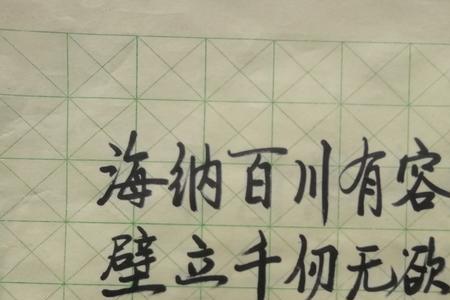 海纳百川有容
壁立千仞无欲